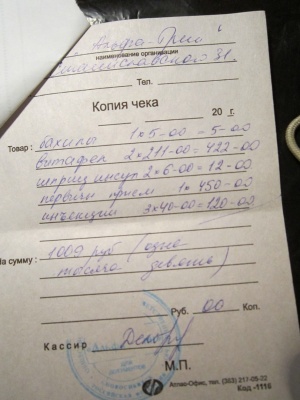 Альфа-
наименование организации
31.
Тел.
Копия чека
20 г.
Товар : бахилы 1×5-00 = 5-00
витафел 2×211-00 = 422-00
шприц инсул 2×6-00 = 12-00
первичн прием 1× 450-00
инъекции 3×40-00=120-00
На сумму : 1009 руб (одна
тысяча девять)
Руб. 00 Коп.
Кассир
М.П.
Атлас-Офис, тел. (383) 217-05-22
Код -1116